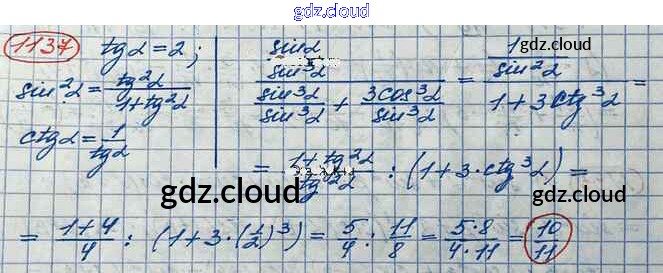 gdz.cloud
1137 tgα = 2;
sin²α = tg²α / 1+tg²α
ctgα = 1 / tgα
sinα / sin³α / sin³α / sin³α + 3cos³α / sin³α = 1 / sin²α / 1+3ctg³α =
gdz.cloud
= 1+tg²α / tg²α : (1+3·ctg³α) =
gdz.cloud gdz.cloud
= 1+4 / 4 : (1+3·(1/2)³) = 5/4 : 11/8 = 5·8 / 4·11 = 10/11